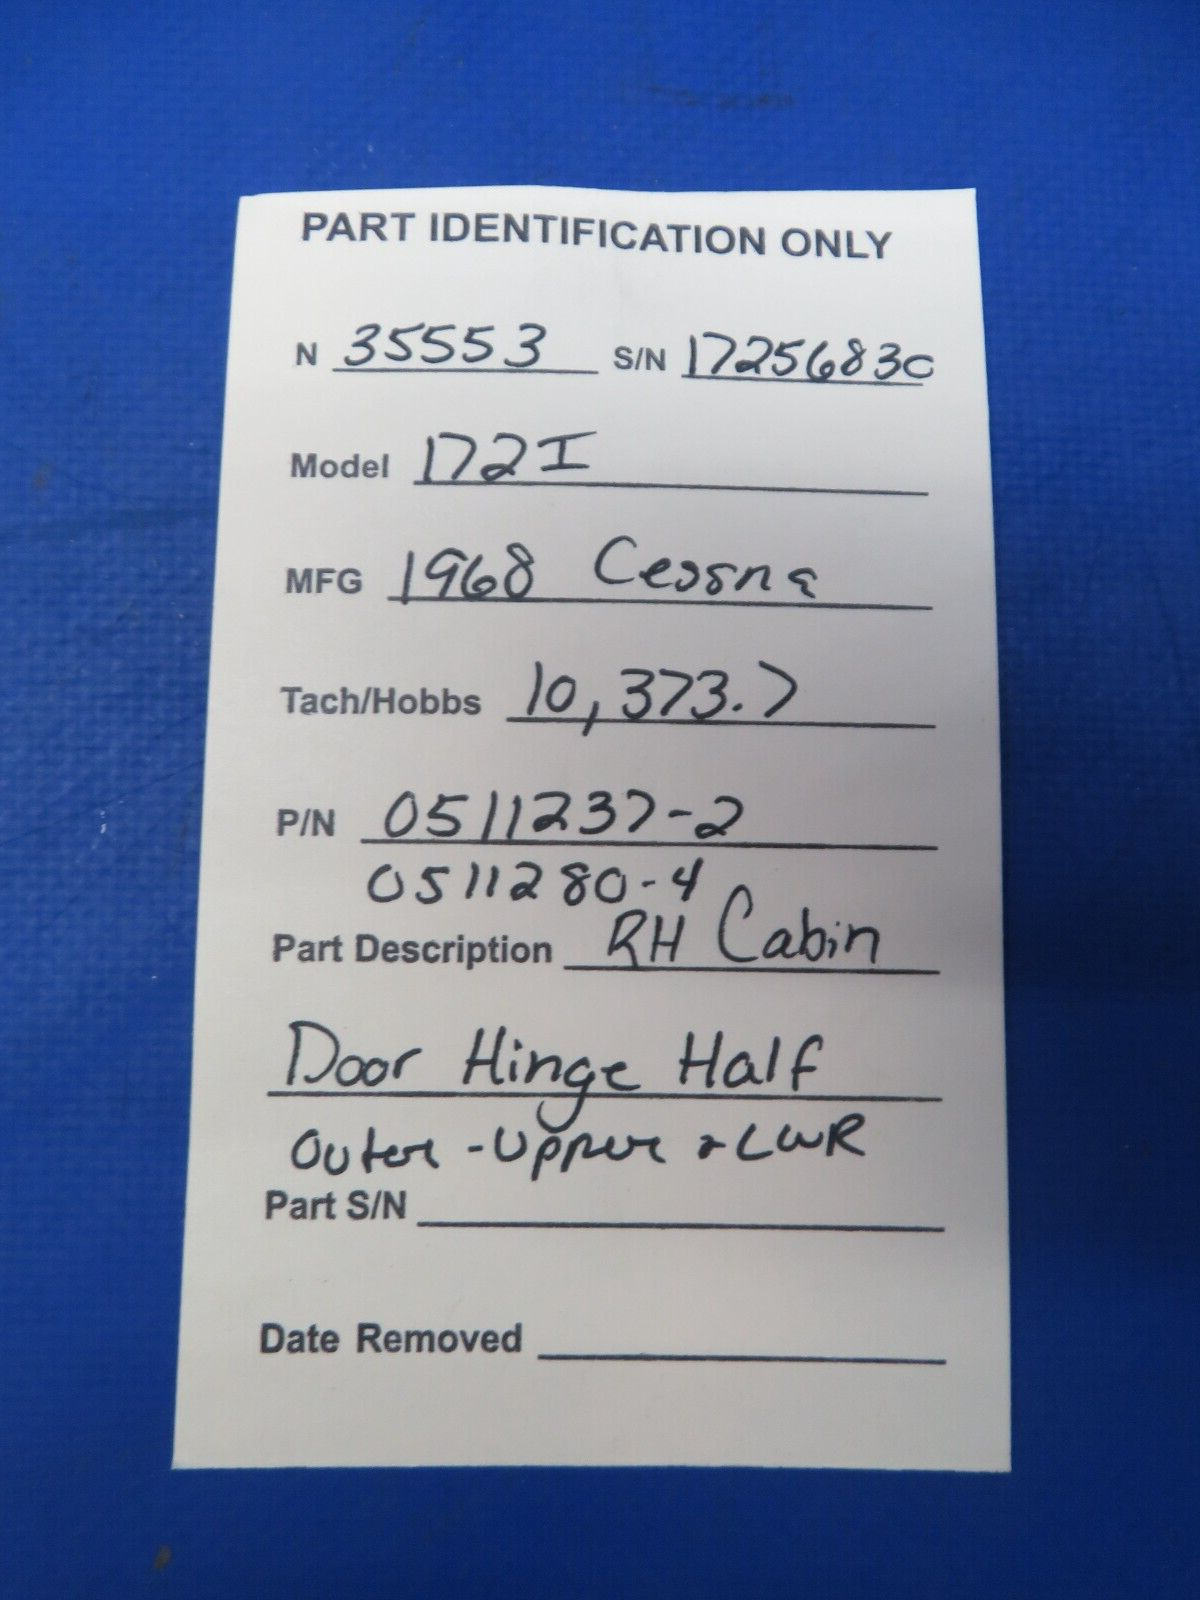 PART IDENTIFICATION ONLY
N 35553 S/N 17256830
Model 172I
MFG 1968 Cessna
Tach/Hobbs 10,373.7
P/N 0511237-2
0511280-4
Part Description RH Cabin
Door Hinge Half
Outer - Upper & LWR
Part S/N
Date Removed